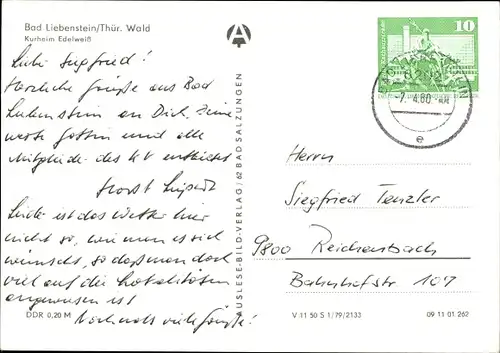 Bad Liebenstein/Thür. Wald
Kurheim Edelweiß
Liebe Siegfried!
Herzliche Grüße aus Bad
Liebenstein an Dich, Deine
werte Gattin und alle
Mitglieder des KV entbietet
Horst
Leider ist das Wetter hier
nicht so, wie man es sich
wünscht, so daß man doch
viel auf die Lokalitäten
angewiesen ist
Nochmals viele Grüße!
DDR 0,20 M
AUSLESE-BILD-VERLAG / 62 BAD SALZUNGEN
10
-7. 4. 80
e
Herrn
Siegfried Tenzler
9800 Reichenbach
Bahnhofstr 107
V 11 50 S 1/79/2133
09 11 01 262